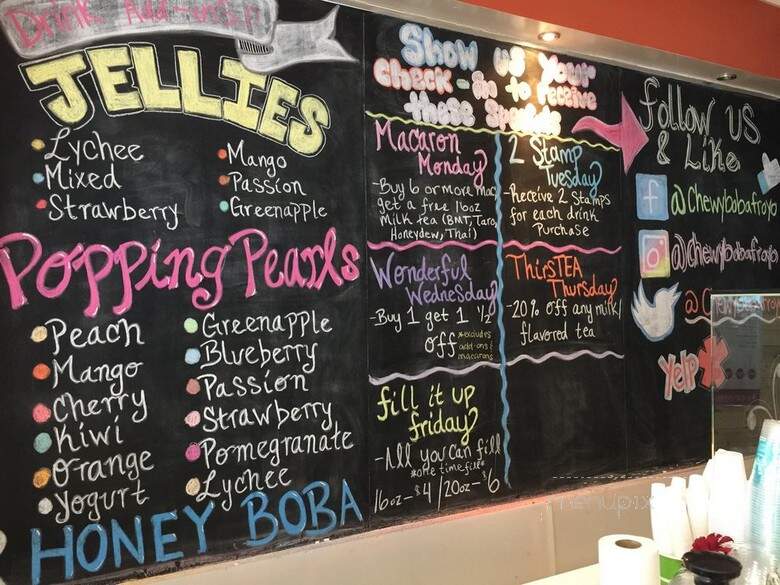 Drink Add-ons!!
JELLIES
Lychee
Mixed
Strawberry
Mango
Passion
Greenapple
Popping Pearls
Peach
Mango
Cherry
Kiwi
Orange
Yogurt
Greenapple
Blueberry
Passion
Strawberry
Pomegranate
Lychee
HONEY BOBA
Show us Your
Check-in to receive
these Specials
Macaron
Monday
-Buy 6 or more mac
get a free 16oz
Milk tea (BMT, Taro,
Honeydew, Thai)
2 Stamp
Tuesday
-Receive 2 Stamps
for each drink
Purchase
Wonderful
Wednesday
-Buy 1 get 1 1/2
off *excludes
add-ons &
macarons
ThirsTEA
Thursday
-20% off any milk/
flavored tea
fill it up
friday
-All you can fill
*one time fill*
16oz-$4 / 20oz-$6
follow US
& Like
f @Chewybobafroyo
@chewybobafroyo
Yelp
menupix